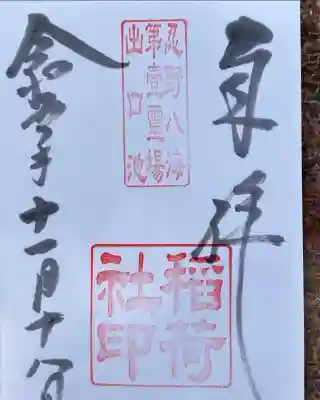 奉拝
忍野八海
第壹霊場
出口池
稲荷
社印
令和年十一月十八日